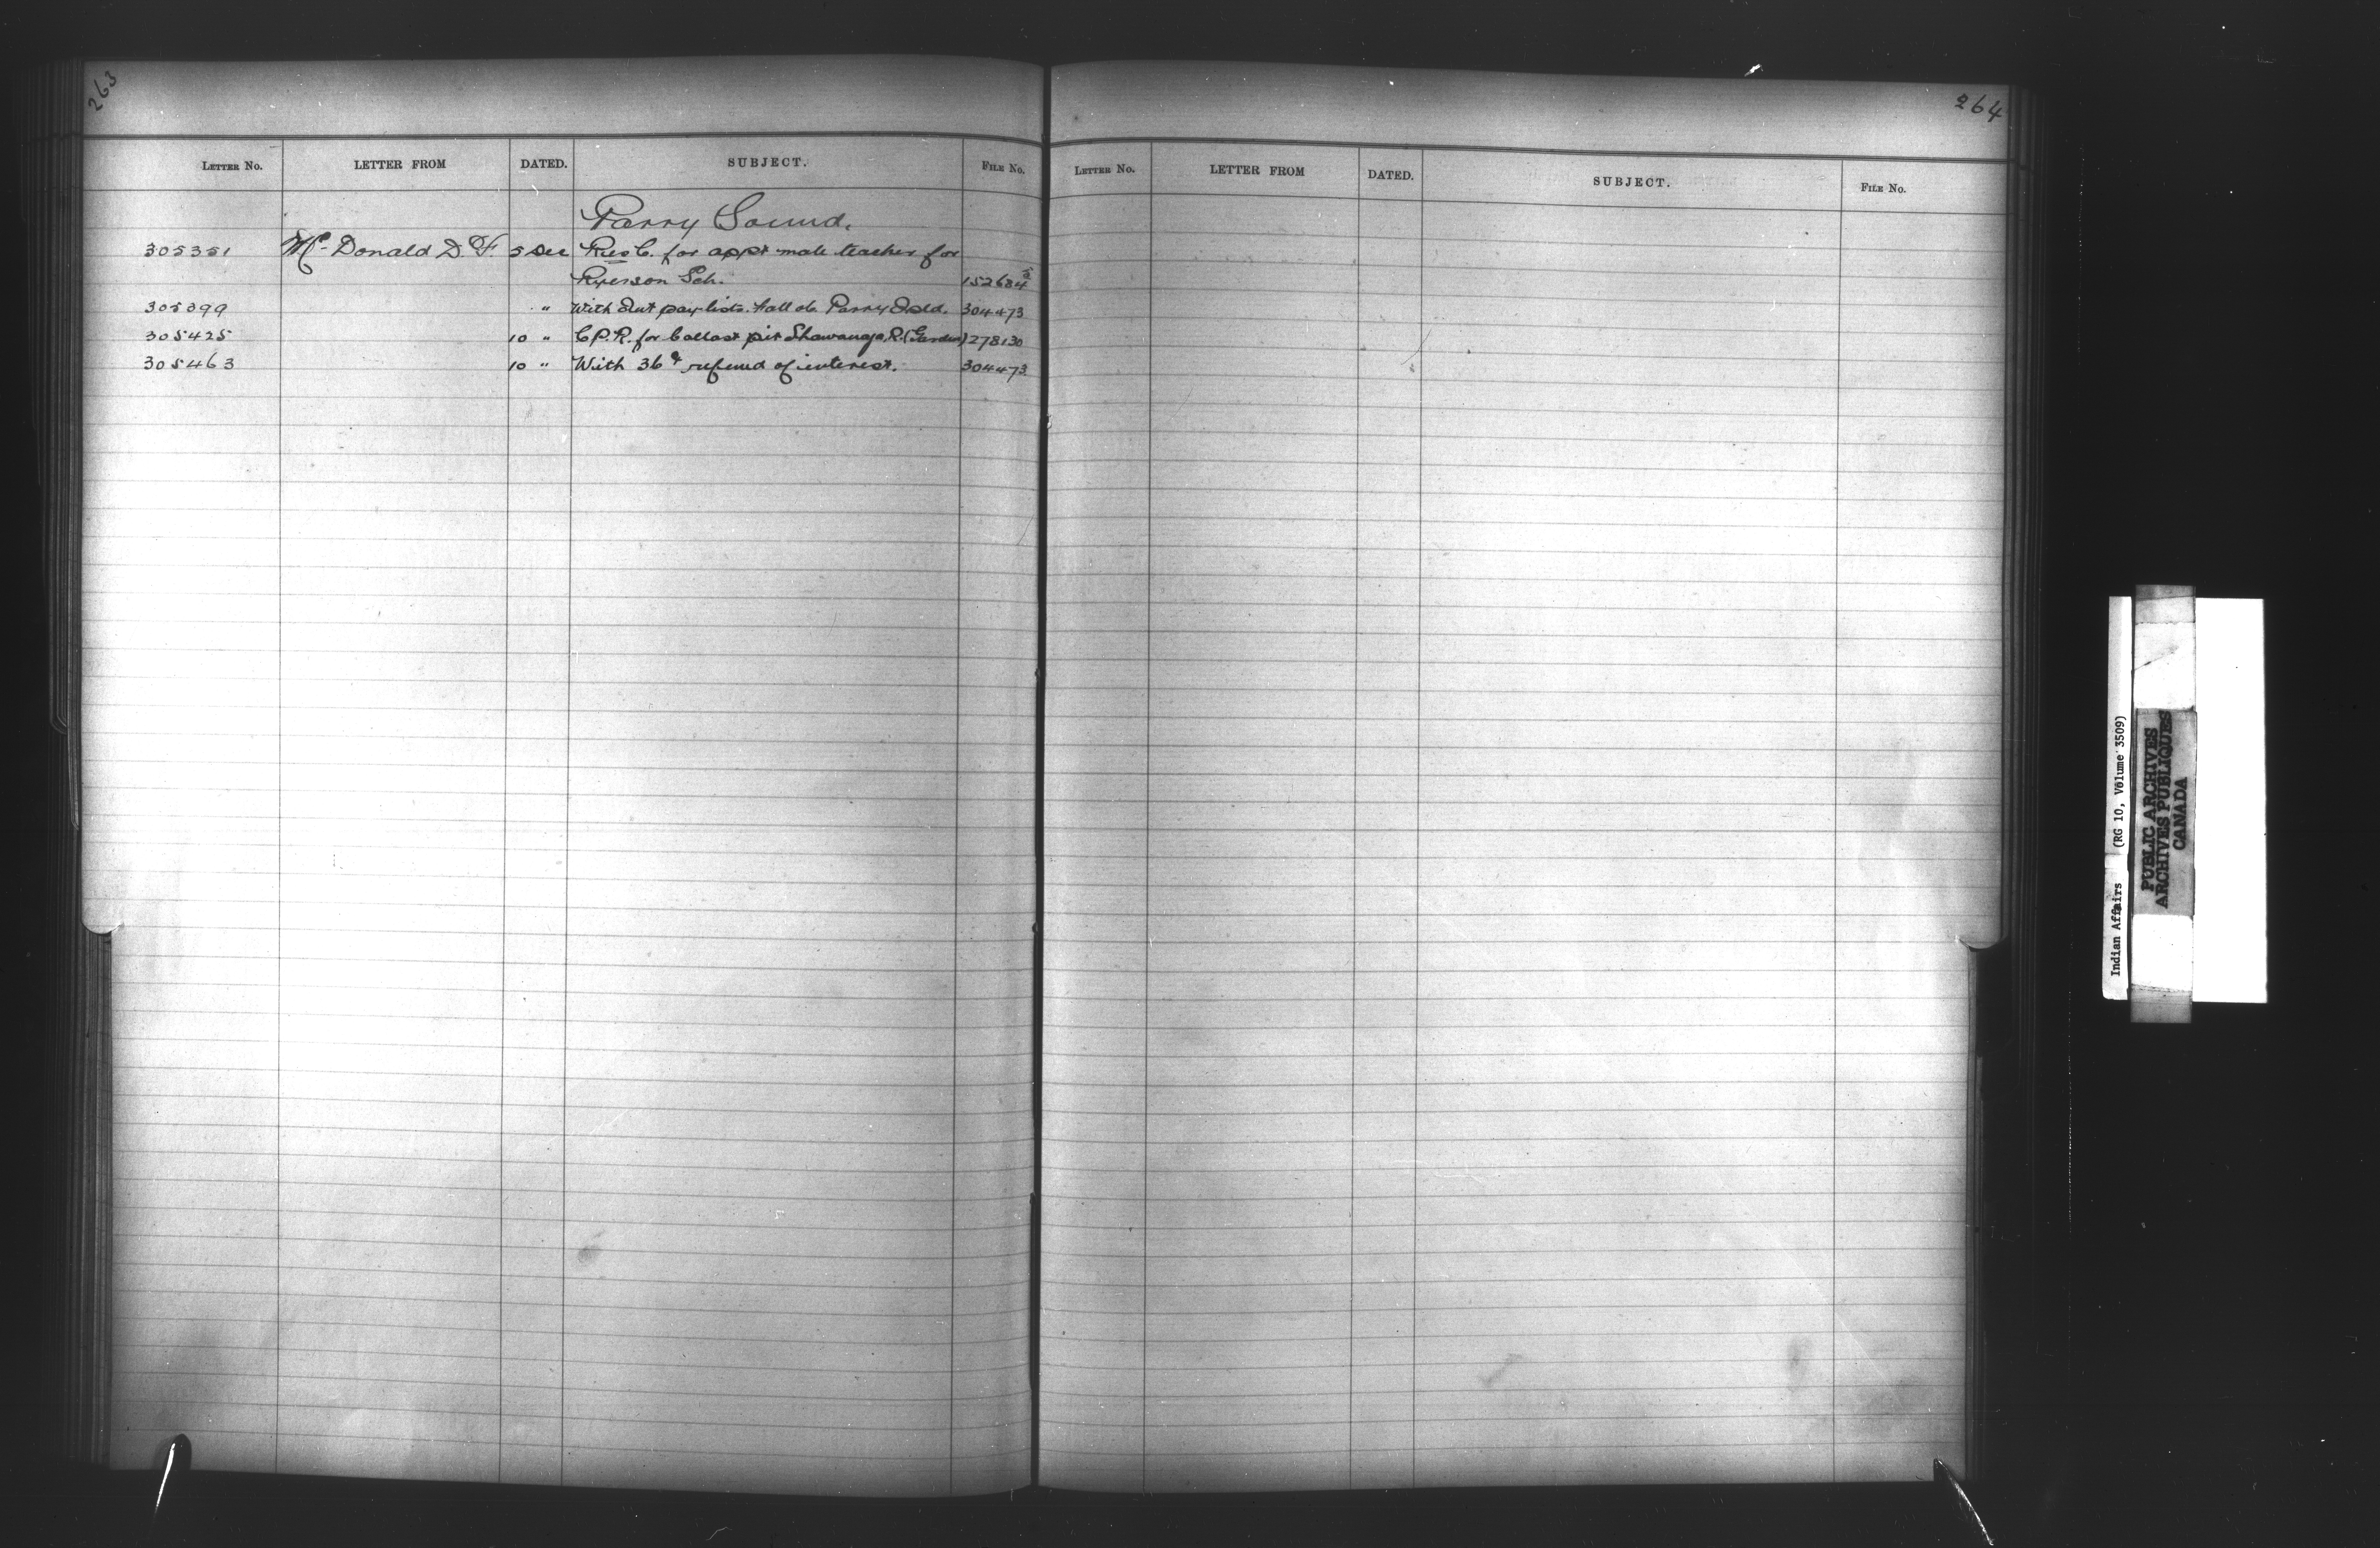 263
LETTER NO. LETTER FROM DATED. SUBJECT. FILE No.
Parry Sound.
305351 Mc Donald D. F. 5 Dec Res C. for appt male teacher for
Ryerson Sch. 152684
305399 " With Int pay lists. Fall do Parry Isld. 304473
305425 10 " C.P.R. for ballast pit Shawanaga R. (Garden) 278130
305463 10 " With 36 ¢ refund of interest. 304473
264
LETTER No. LETTER FROM DATED. SUBJECT. FILE No.
Indian Affairs (RG 10, Volume 3509)
PUBLIC ARCHIVES
ARCHIVES PUBLIQUES
CANADA